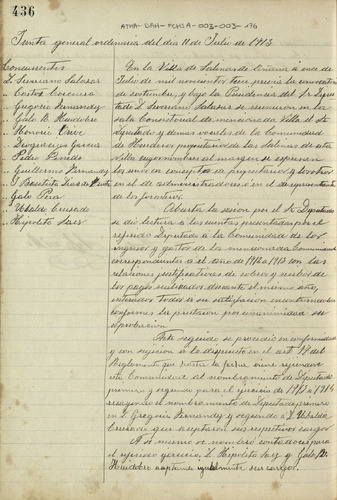 436
ATHA-DAH-FCHSA-003-003-176
Junta general ordinaria del dia 11 de Julio de 1913
Concurrentes
D. Severiano Salazar
" Gregorio Fernandez
" Galo B. Huidobro
" Honorio Orive
" Deogracias Garcia
" Pedro Paredo
" Guillermo Fernandez
" Galo Peña
" Ubaldo
" Hipolito Saez
En la Villa de Salinas de Añana á once de
Julio de mil novecientos trece previa la convocatoria
de costumbre, y bajo la Presidencia del Sr. Dipu-
tado D. Severiano Salazar se reunieron en la
sala Consistorial de mencionada Villa el Sr.
Diputado y demas vocales de la Comunidad
de Herederos propietarios de las Salinas de esta
villa cuyos nombres al margen se espresan
los unos en concepto de propietarios y los otros
en el de administradores ó en el de representantes
de los forasteros.
Abierta la sesion por el Sr. Diputado
se dió lectura á las cuentas presentadas por el
referido Diputado á la Comunidad de los
ingresos y gastos de la mencionada Comunidad
correspondientes á el año de 1912 á 1913 con las
relaciones justificativas de cobros y recibos de
los pagos realizados durante el mismo año,
enterados todos á su satisfaccion encontrandolas
conformes las prestaron por unanimidad su
aprobacion.
Acto seguido se procedió en conformidad
y con sujecion á lo dispuesto en el art. 19 del
Reglamento que hasta la fecha viene rigiendo en
esta Comunidad al nombramiento de Diputados
primero y segundo para el ejercicio de 1913 á 1914
recayendo el nombramiento de Diputado primero
en D. Gregorio Fernandez y segundo á D. Ubaldo
que aceptaron sus respectivos cargos.
Asi mismo se nombró contadores para
el referido ejercicio á D. Hipolito Saez y Galo B.
Huidobro aceptando igualmente sus cargos.